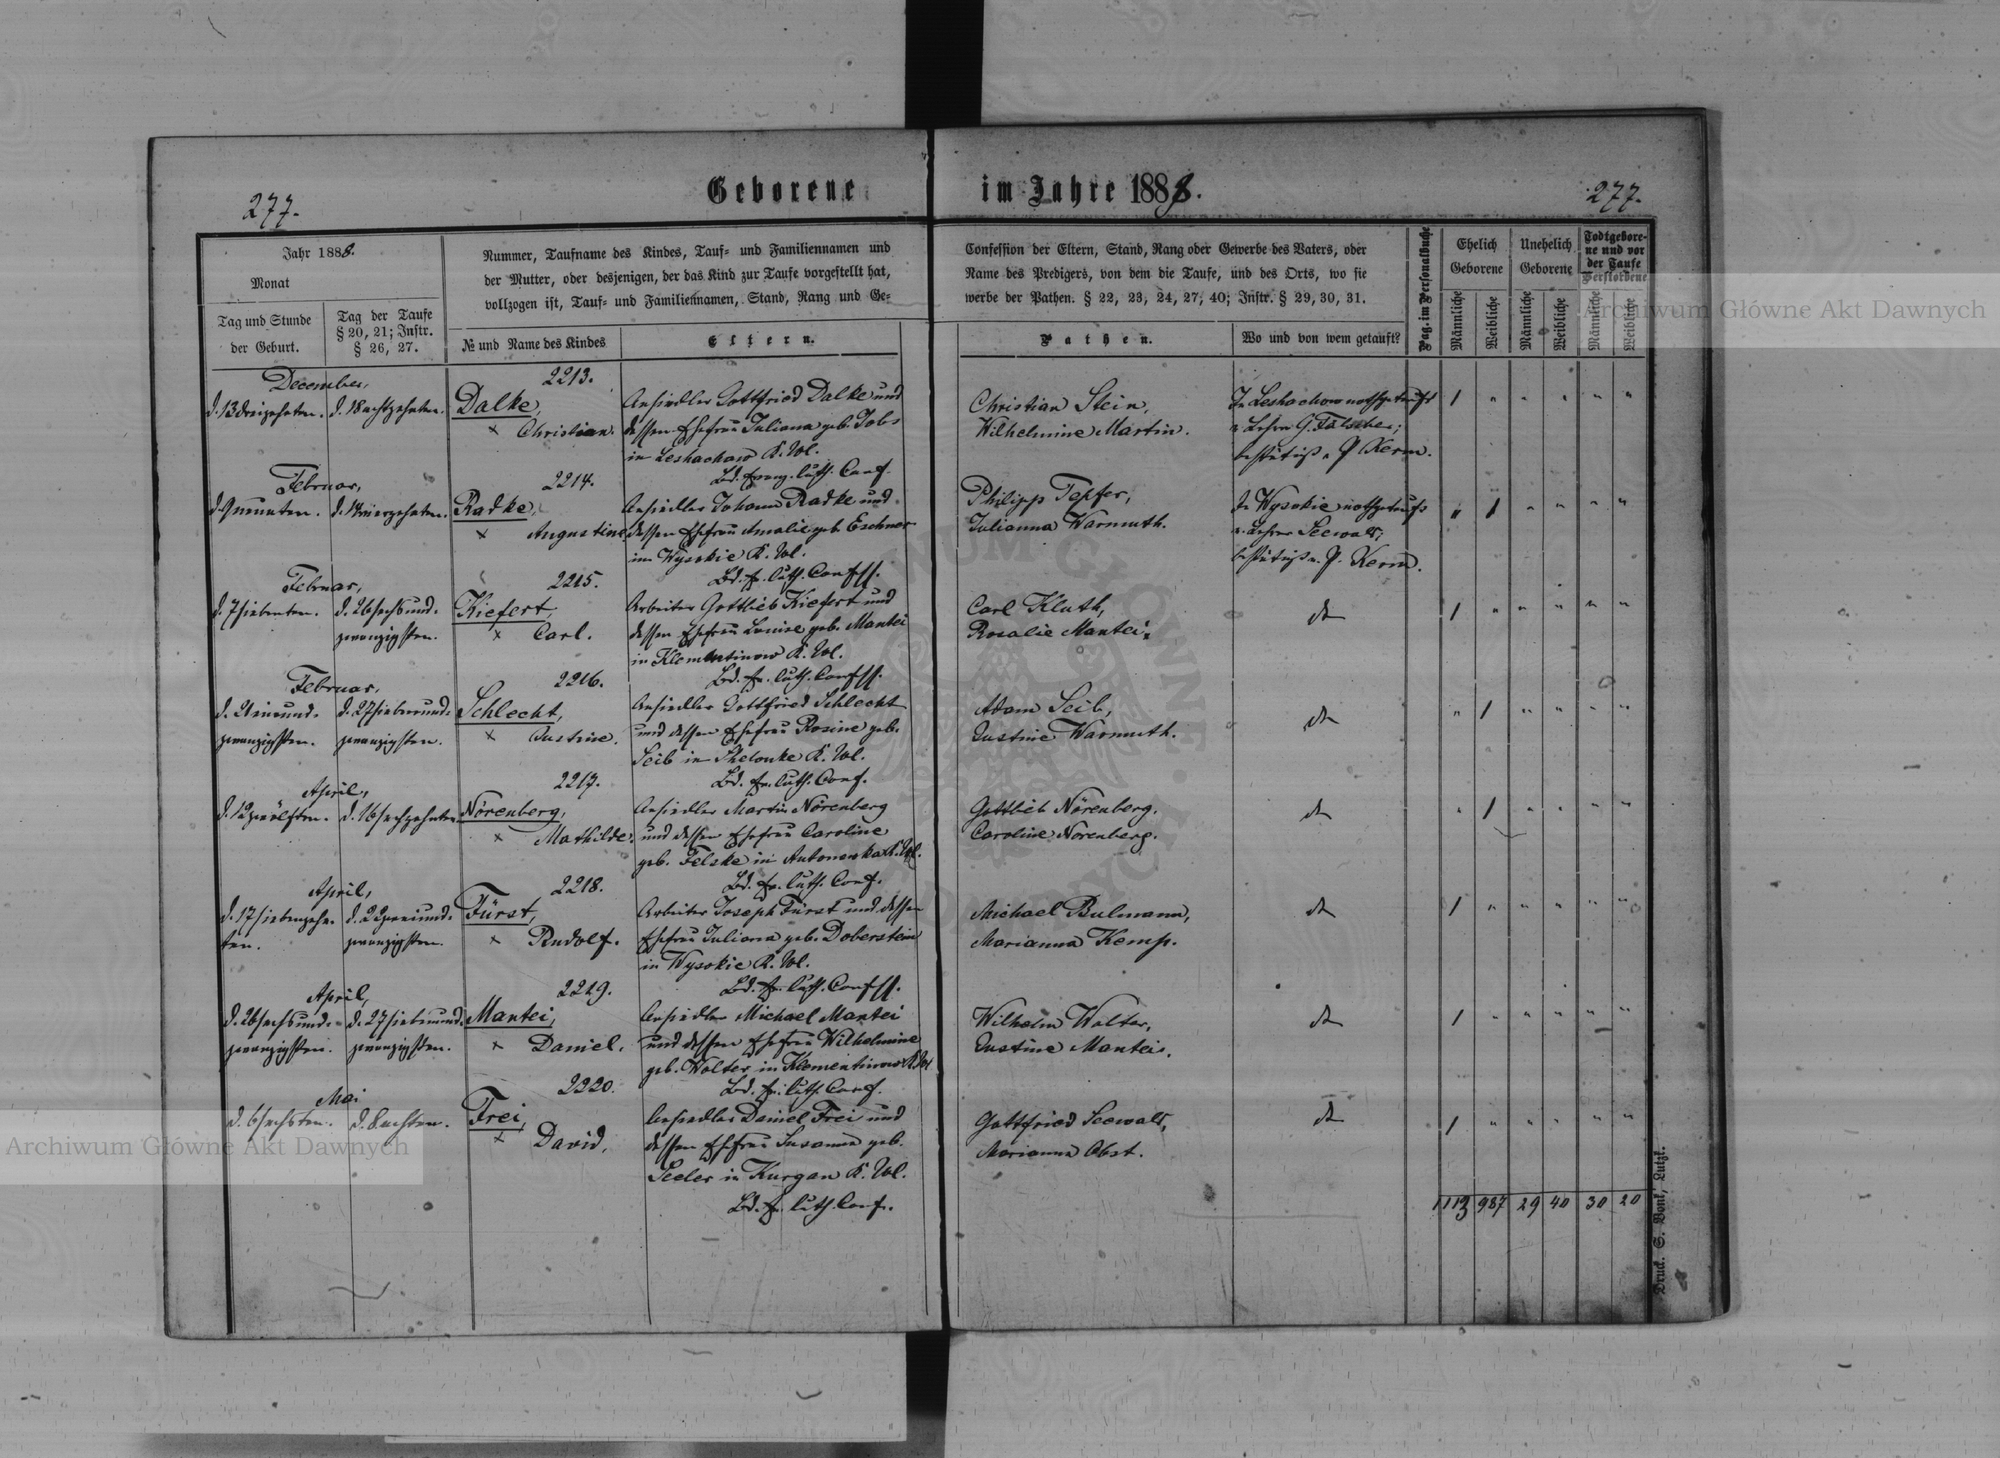 277.
Geborene
im Jahre 1888.
277.
Jahr 1888.
Monat
Tag und Stunde
der Geburt.
Tag der Taufe
§ 20, 21; Instr.
§ 26, 27.
Nummer, Taufname des Kindes, Tauf- und Familiennamen und
der Mutter, oder desjenigen, der das Kind zur Taufe vorgestellt hat,
vollzogen ist, Tauf- und Familiennamen, Stand, Rang und Ge-
№ und Name des Kindes
Eltern.
Confession der Eltern, Stand, Rang oder Gewerbe des Vaters, oder
Name des Predigers, von dem die Taufe, und des Orts, wo sie
werbe der Pathen. § 22, 23, 24, 27, 40; Instr. § 29, 30, 31.
Pathen.
Wo und von wem getauft?
Pag. im Personalbuche
Ehelich
Geborene
Unehelich
Geborene
Todtgebore-
ne und vor
der Taufe
Verstorbene
Männliche
Weibliche
Männliche
Weibliche
Männliche
Weibliche
December,
d. 13 dreizehnten. d. 18 achtzehnten.
2213.
Dalke,
Christian.
Ansiedler Gottfried Dalke und
dessen Ehefrau Juliana geb. Jobs
in Leshachow K. Wl.
Bd. Evang. luth. Conf.
Christian Stein,
Wilhelmine Martin.
In Leshachow nothgetauft
v. Lehrer G.
bestätigt v. P. Kerm.
1 " " " " "
Februar,
d. 9 neunten. d. 14 vierzehnten.
2214.
Radke,
Augustine.
Ansiedler Johann Radke und
dessen Ehefrau Amalie geb. Eschner
in Wysokie K. Wl.
Bd. Ev. luth. Conff.
Philipp Tepfer,
Julianna Warmuth.
In Wysokie nothgetauft
v. Lehrer Seewald;
bestätigt v. P. Kerm.
" 1 " " " "
Februar,
d. 7 siebenten. d. 26 sechsund-
zwanzigsten.
2215.
Kiefert,
Carl.
Arbeiter Gottlieb Kiefert und
dessen Ehefrau Louise geb. Mantei
in Klementinow K. Wl.
Bd. Ev. luth. Conff.
Carl Kluth,
Rosalie Mantei.
dto
1 " " " " "
Februar,
d. 21 einund- d. 27 siebenund-
zwanzigsten. zwanzigsten.
2216.
Schlecht,
Justine.
Ansiedler Gottfried Schlecht
und dessen Ehefrau Rosine geb.
Seib in Shelonke K. Wl.
Bd. Ev. luth. Conf.
Adam Seib,
Justine Warmuth.
dto
" 1 " " " "
April,
d. 12 zwölften. d. 16 sechzehnten
2217.
Nörenberg,
Mathilde.
Ansiedler Martin Nörenberg
und dessen Ehefrau Caroline
geb. Felske in Antonowka K. Wl.
Bd. Ev. luth. Conf.
Gottlieb Nörenberg.
Caroline Nörenberg.
dto
" 1 " " " "
April,
d. 17 siebenzehn- d. 22 zweiund-
ten. zwanzigsten.
2218.
Fürst,
Rudolf.
Arbeiter Joseph Fürst und dessen
Ehefrau Juliana geb. Doberstein
in Wysokie K. Wl.
Bd. Ev. luth. Conff.
Michael Bulmann,
Marianna Kemp.
dto
1 " " " " "
April,
d. 26 sechsund- d. 27 siebenund-
zwanzigsten. zwanzigsten.
2219.
Mantei,
Daniel.
Ansiedler Michael Mantei
und dessen Ehefrau Wilhelmine
geb. Wolter in Klementinow K. Wl
Bd. Ev. luth. Conf.
Wilhelm Wolter,
Justine Mantei.
dto
1 " " " " "
Mai
d. 6 sechsten. d. 8 achten.
2220.
Frei,
David.
Ansiedler Daniel Frei und
dessen Ehefrau Susanna geb.
Seeler in Kurgan K. Wl.
Bd. Ev. luth. Conf.
Gottfried Seewald,
Marianna Obst.
dto
1 " " " " "
1113 987 29 40 30 20
Druck. S. Bonk, Lutzk.
Archiwum Główne Akt Dawnych
Archiwum Główne Akt Dawnych